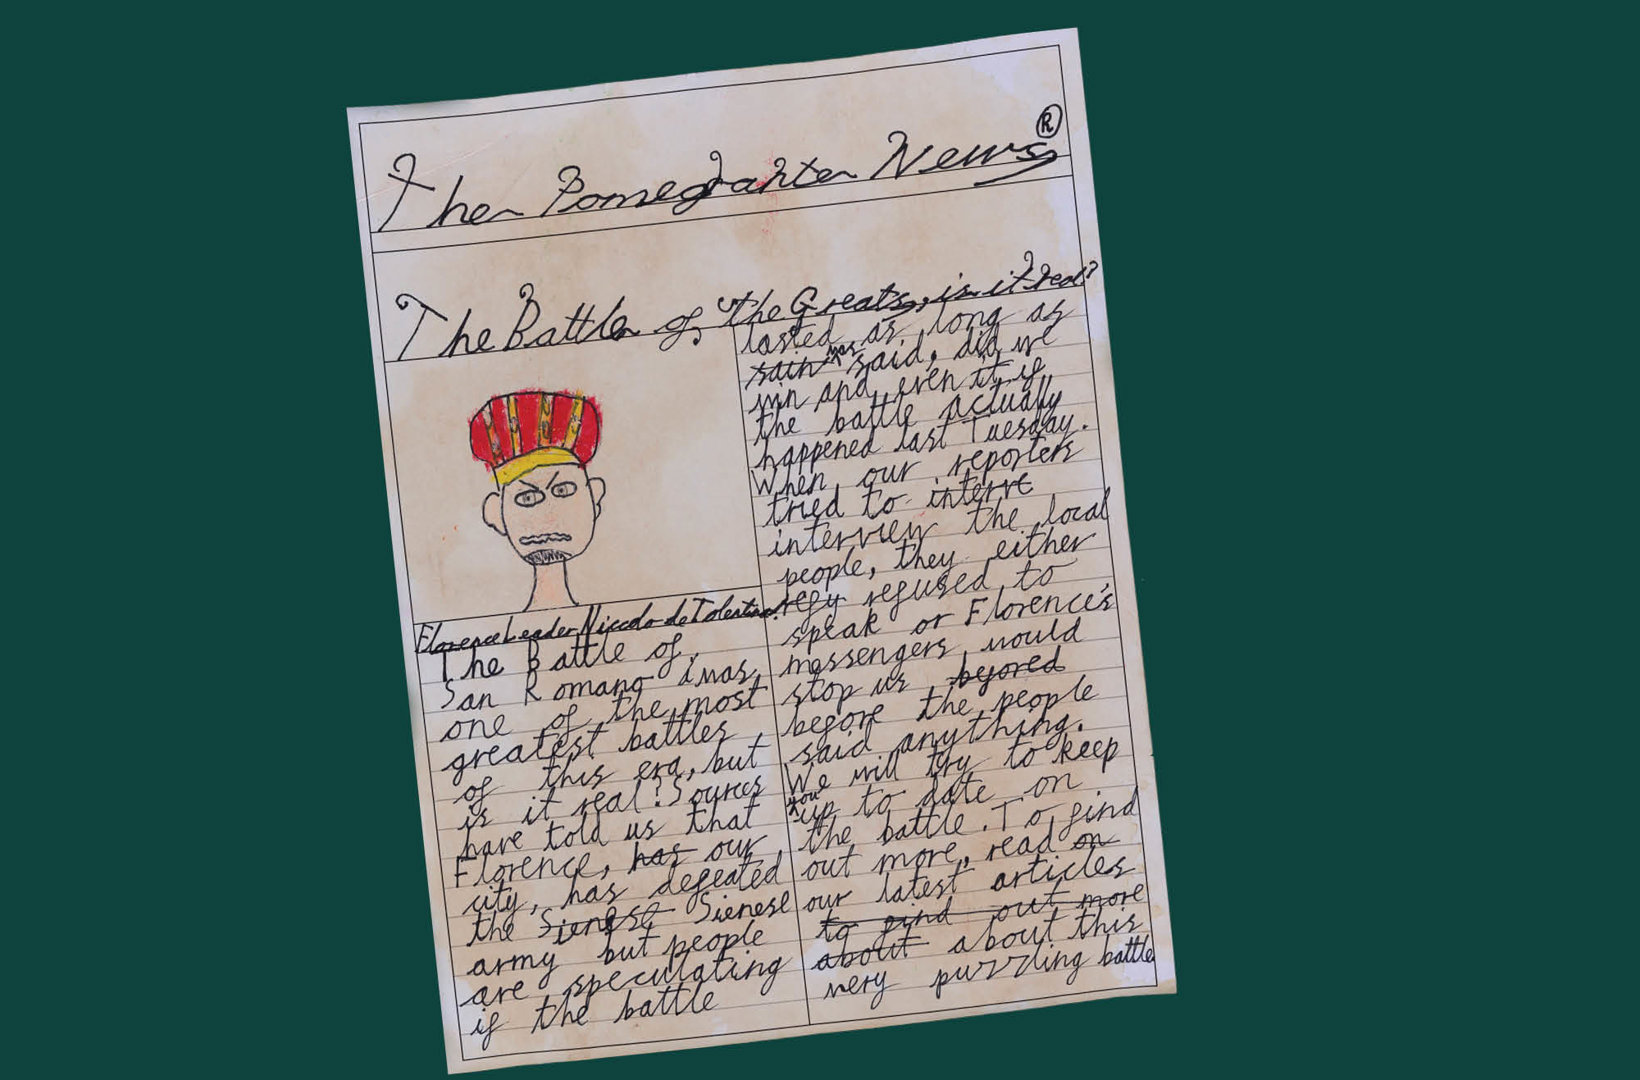 The Pomegranate News ®
The Battle of the Greats, is it real?
Florence Leader Niccolo de Tolentino!
The Battle of
San Romano was
one of the most
greatest battles
of this era, but
is it real? Sources
have told us that
Florence, has our
city, has defeated
the Sienese Sienese
army but people
are speculating
if the battle
lasted as long as
sain was said, did we
win and even it if
the battle actually
happened last Tuesday.
When our reporters
tried to interve
interview the local
people, they either
refu refused to
speak or Florence's
messengers would
stop us befored
before the people
said anything.
We will try to keep
you up to date on
the battle. To find
out more, read on
our latest articles
to find out more
about about this
very puzzling battle